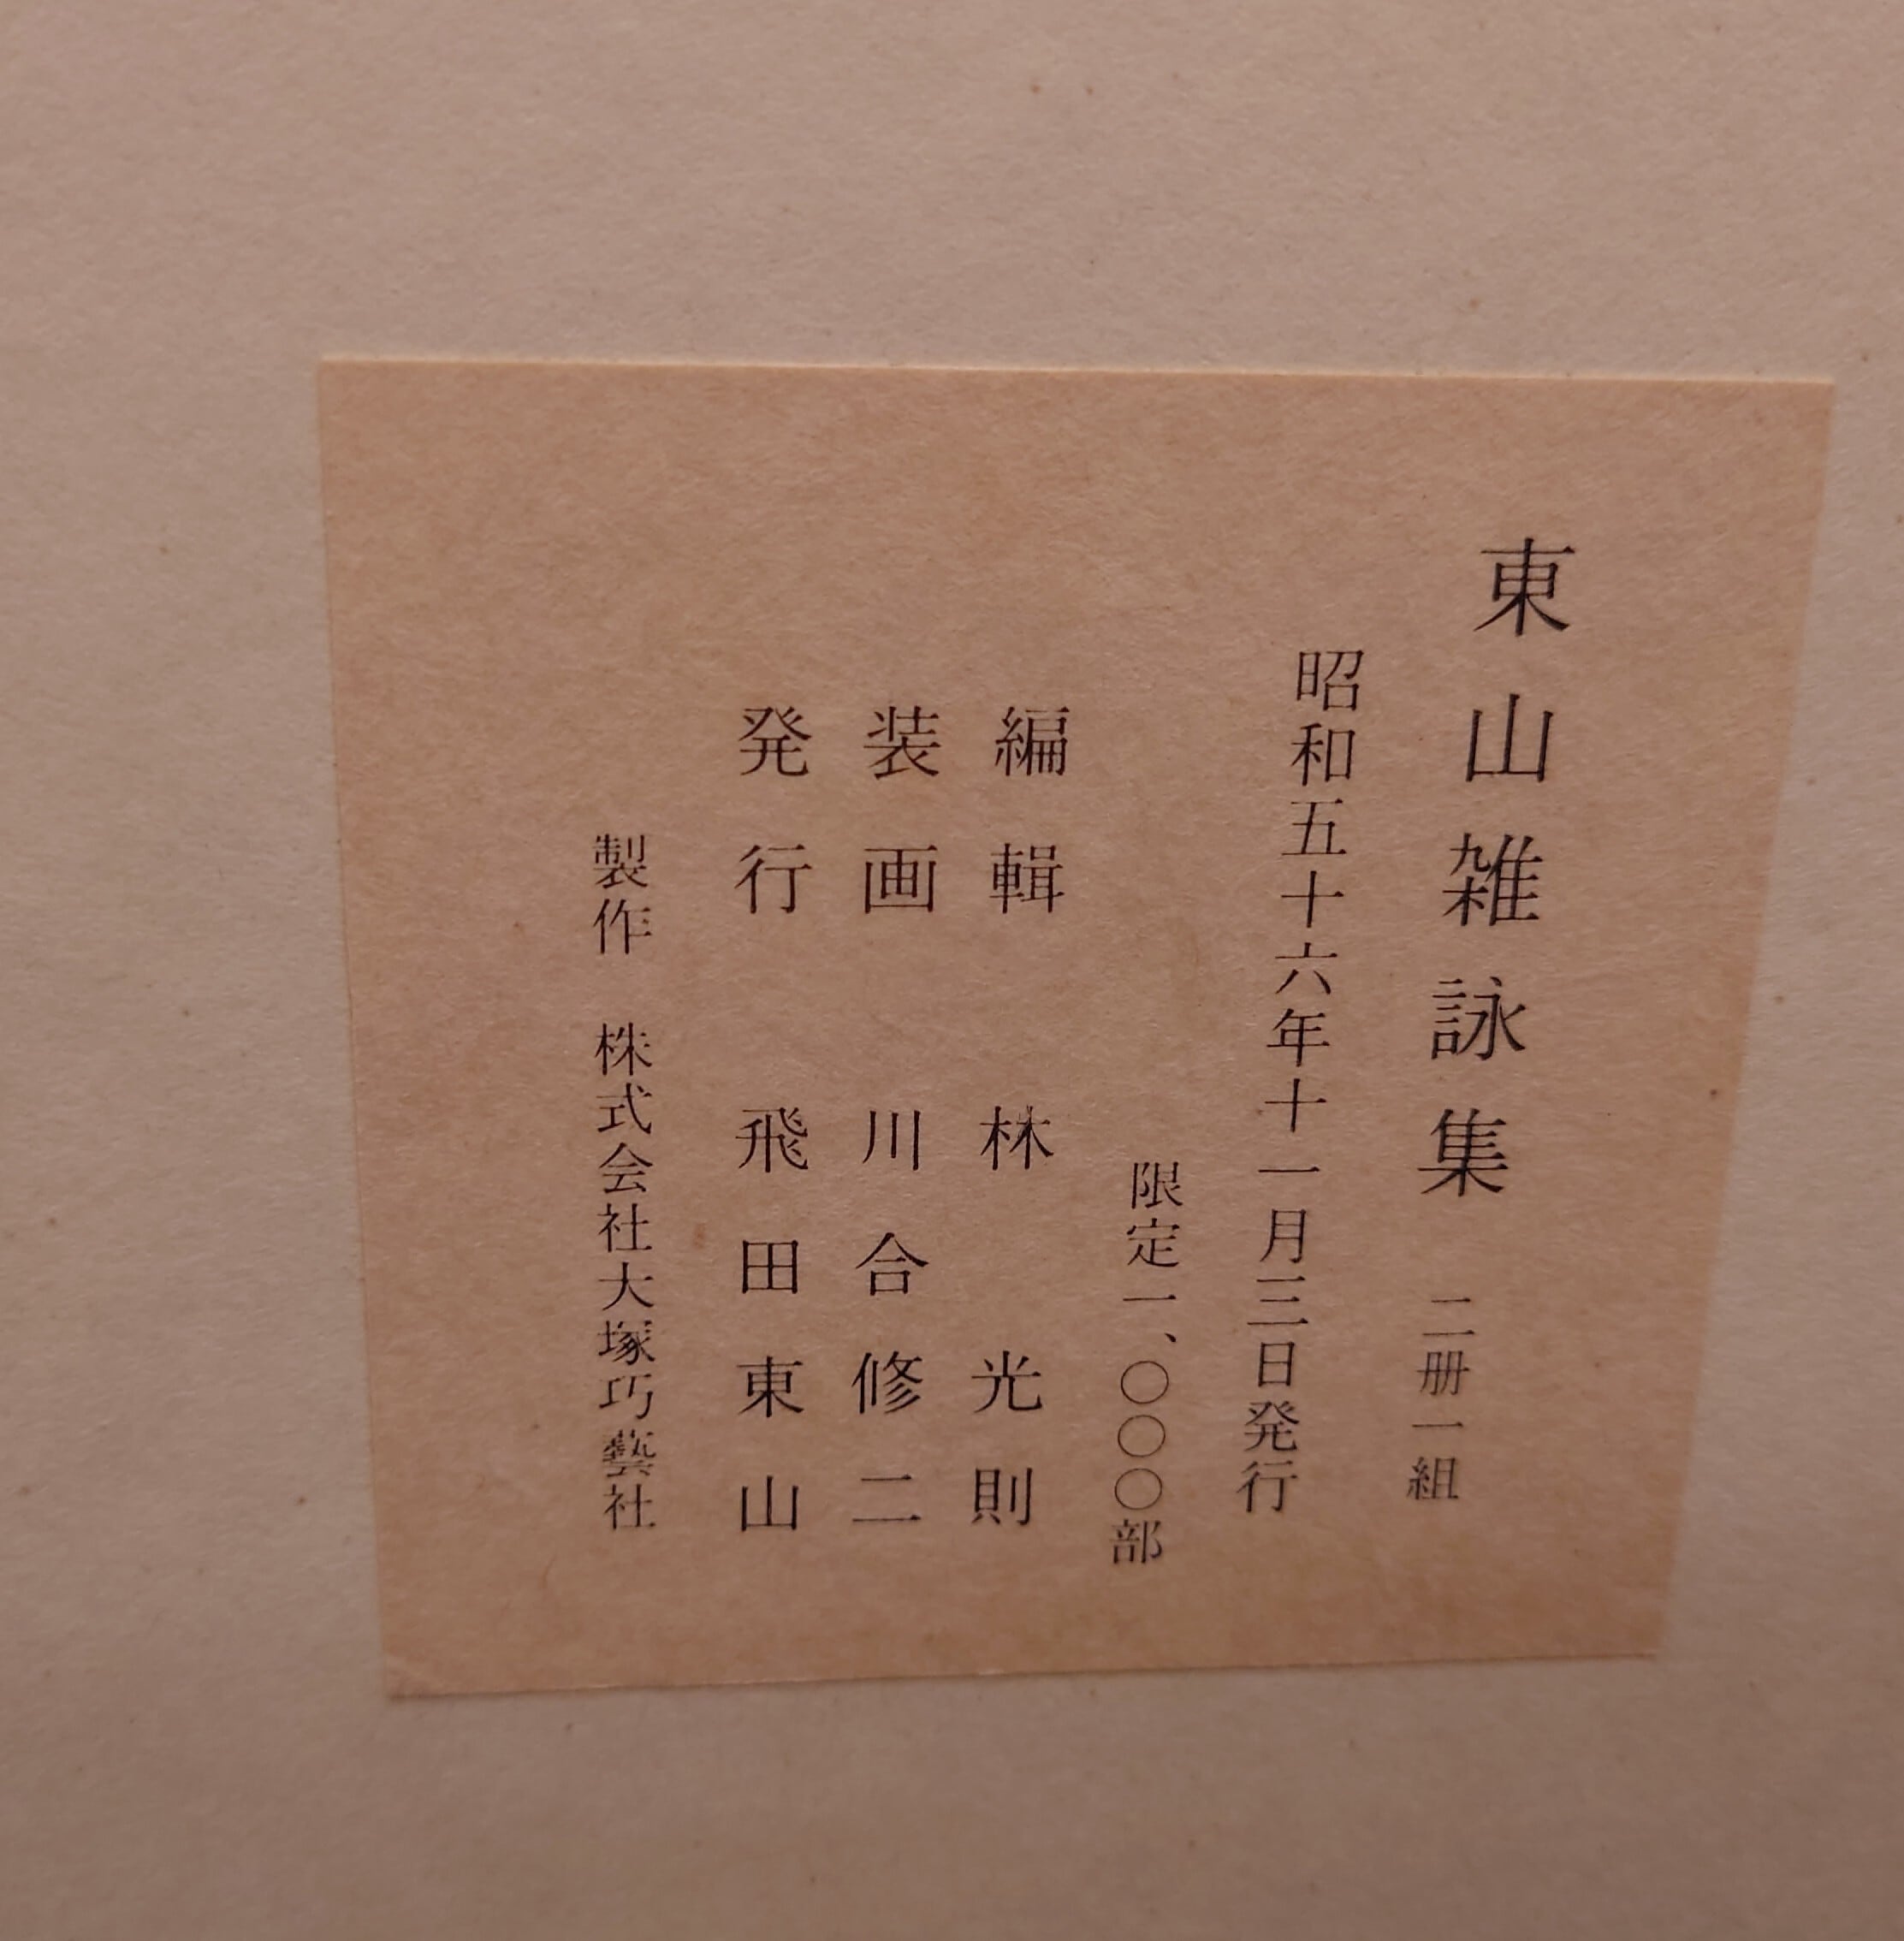 東山雑詠集 二册一組
昭和五十六年十一月三日発行
限定一、〇〇〇部
編輯 林光則
装画 川合修二
発行 飛田東山
製作 株式会社大塚巧藝社